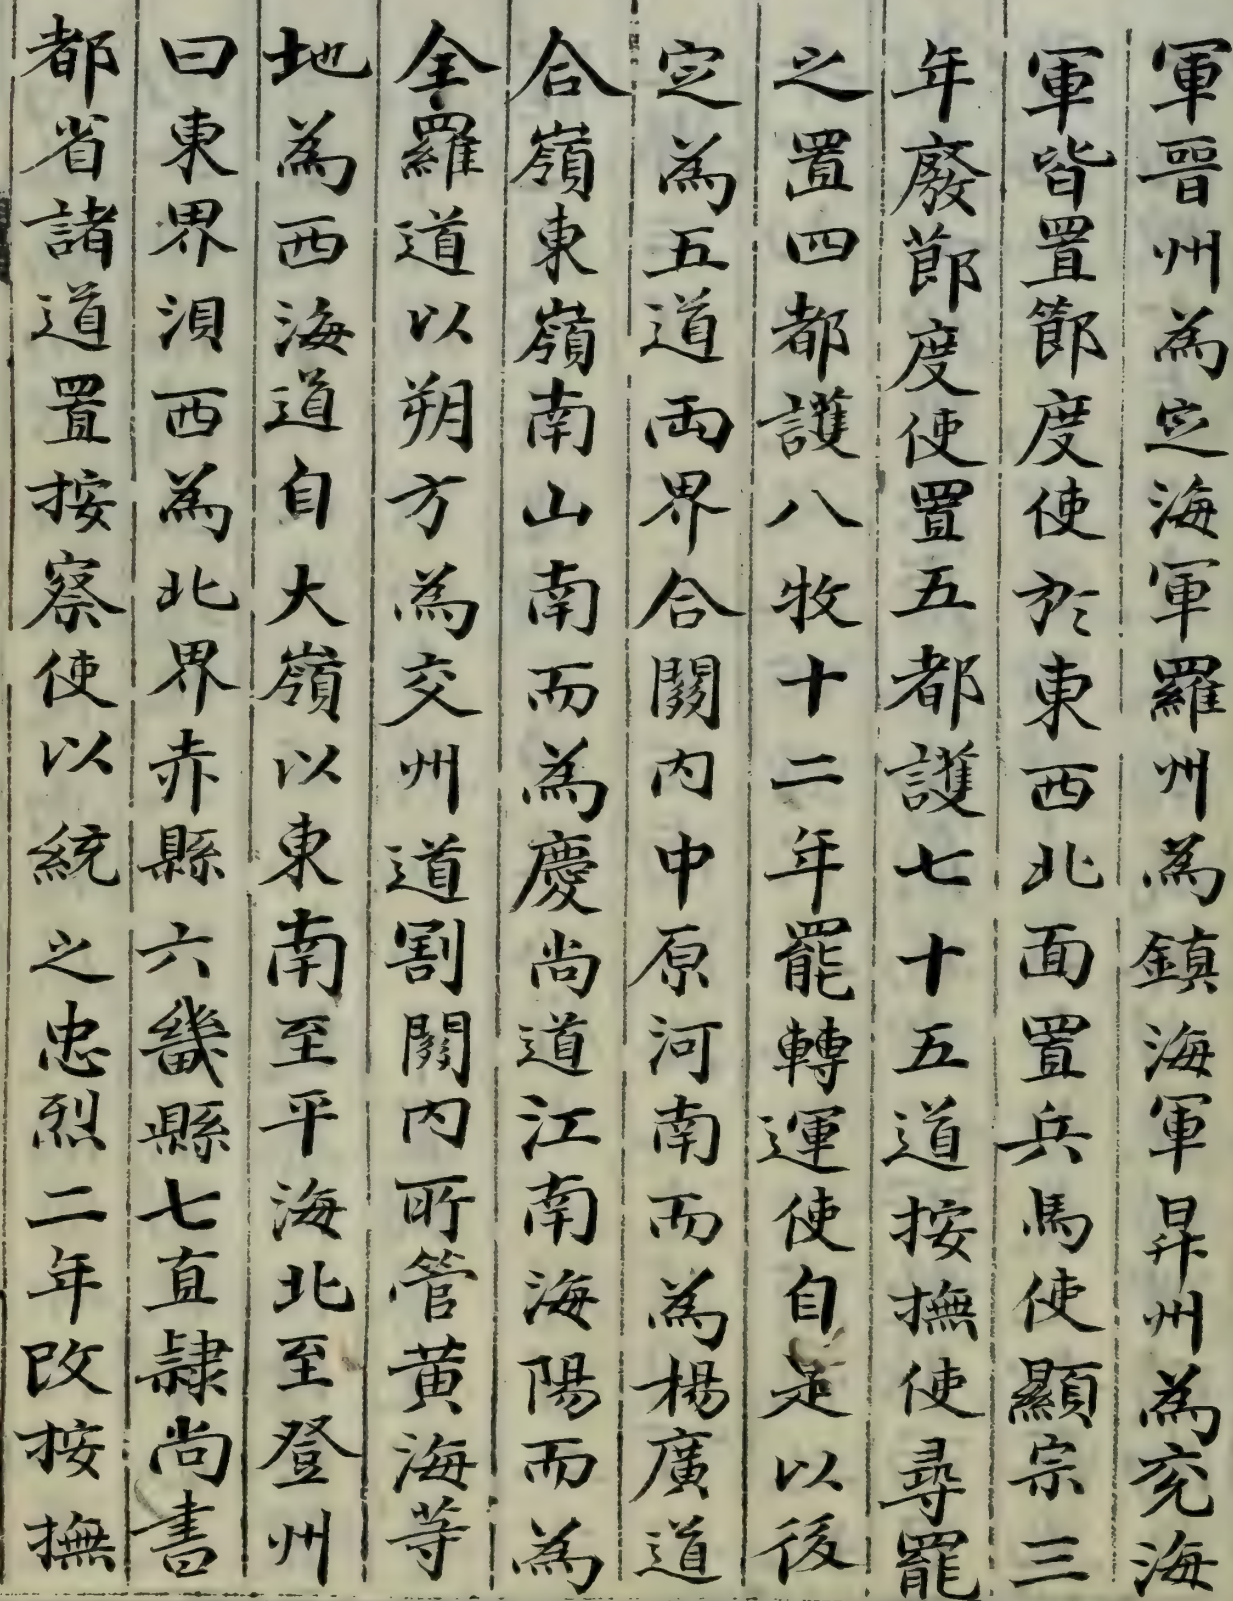 軍晉州為定海軍羅州為鎮海軍昇州為兖海
軍皆置節度使於東西北面置兵馬使顯宗三
年廢節度使置五都護七十五道按撫使尋罷
之置四都護八牧十二年罷轉運使自是以後
定為五道兩界合關內中原河南而為楊廣道
合嶺東嶺南山南而為慶尚道江南海陽而為
全羅道以朔方為交州道割關內所管黃海等
地為西海道自大嶺以東南至平海北至登州
曰東界浿西為北界赤縣六畿縣七直隷尚書
都省諸道置按察使以統之忠烈二年改按撫